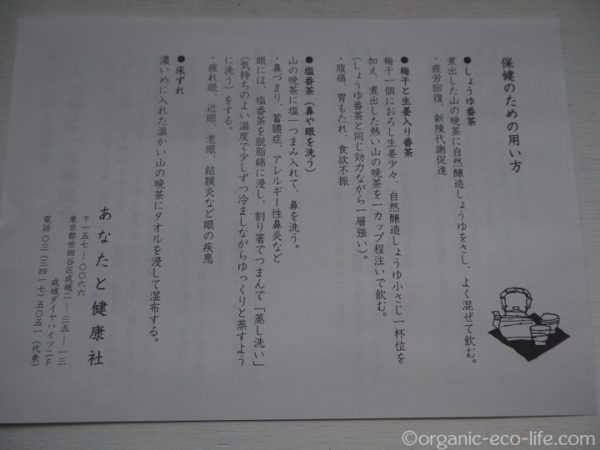 保健のための用い方
●しょうゆ番茶
煮出した山の晩茶に自然醸造しょうゆをさし、よく混ぜて飲む。
・疲労回復、新陳代謝促進
●梅干と生姜入り番茶
梅干一個におろし生姜少々、自然醸造しょうゆ小さじ一杯位を
加え、煮出した熱い山の晩茶を一カップ程注いで飲む。
（しょうゆ番茶と同じ効力ながら一層強い）。
・腹痛、胃もたれ、食欲不振
●塩番茶（鼻や眼を洗う）
山の晩茶に塩一つまみ入れて、鼻を洗う。
・鼻づまり、蓄膿症、アレルギー性鼻炎など
眼には、塩番茶を脱脂綿に浸し、割り箸でつまんで「蒸し洗い」
（気持ちのよい温度で少しずつ冷ましながらゆっくりと蒸すよう
に洗う）をする。
・疲れ眼、近眼、老眼、結膜炎など眼の疾患
●床ずれ
濃いめに入れた温かい山の晩茶にタオルを浸して湿布する。
あなたと健康社
〒一五七―〇〇六六
東京都世田谷区成城二―三五―一三
成城ダイヤハイツ二F
電話〇三（三四一七）五〇五一（代表）
©organic-eco-life.com